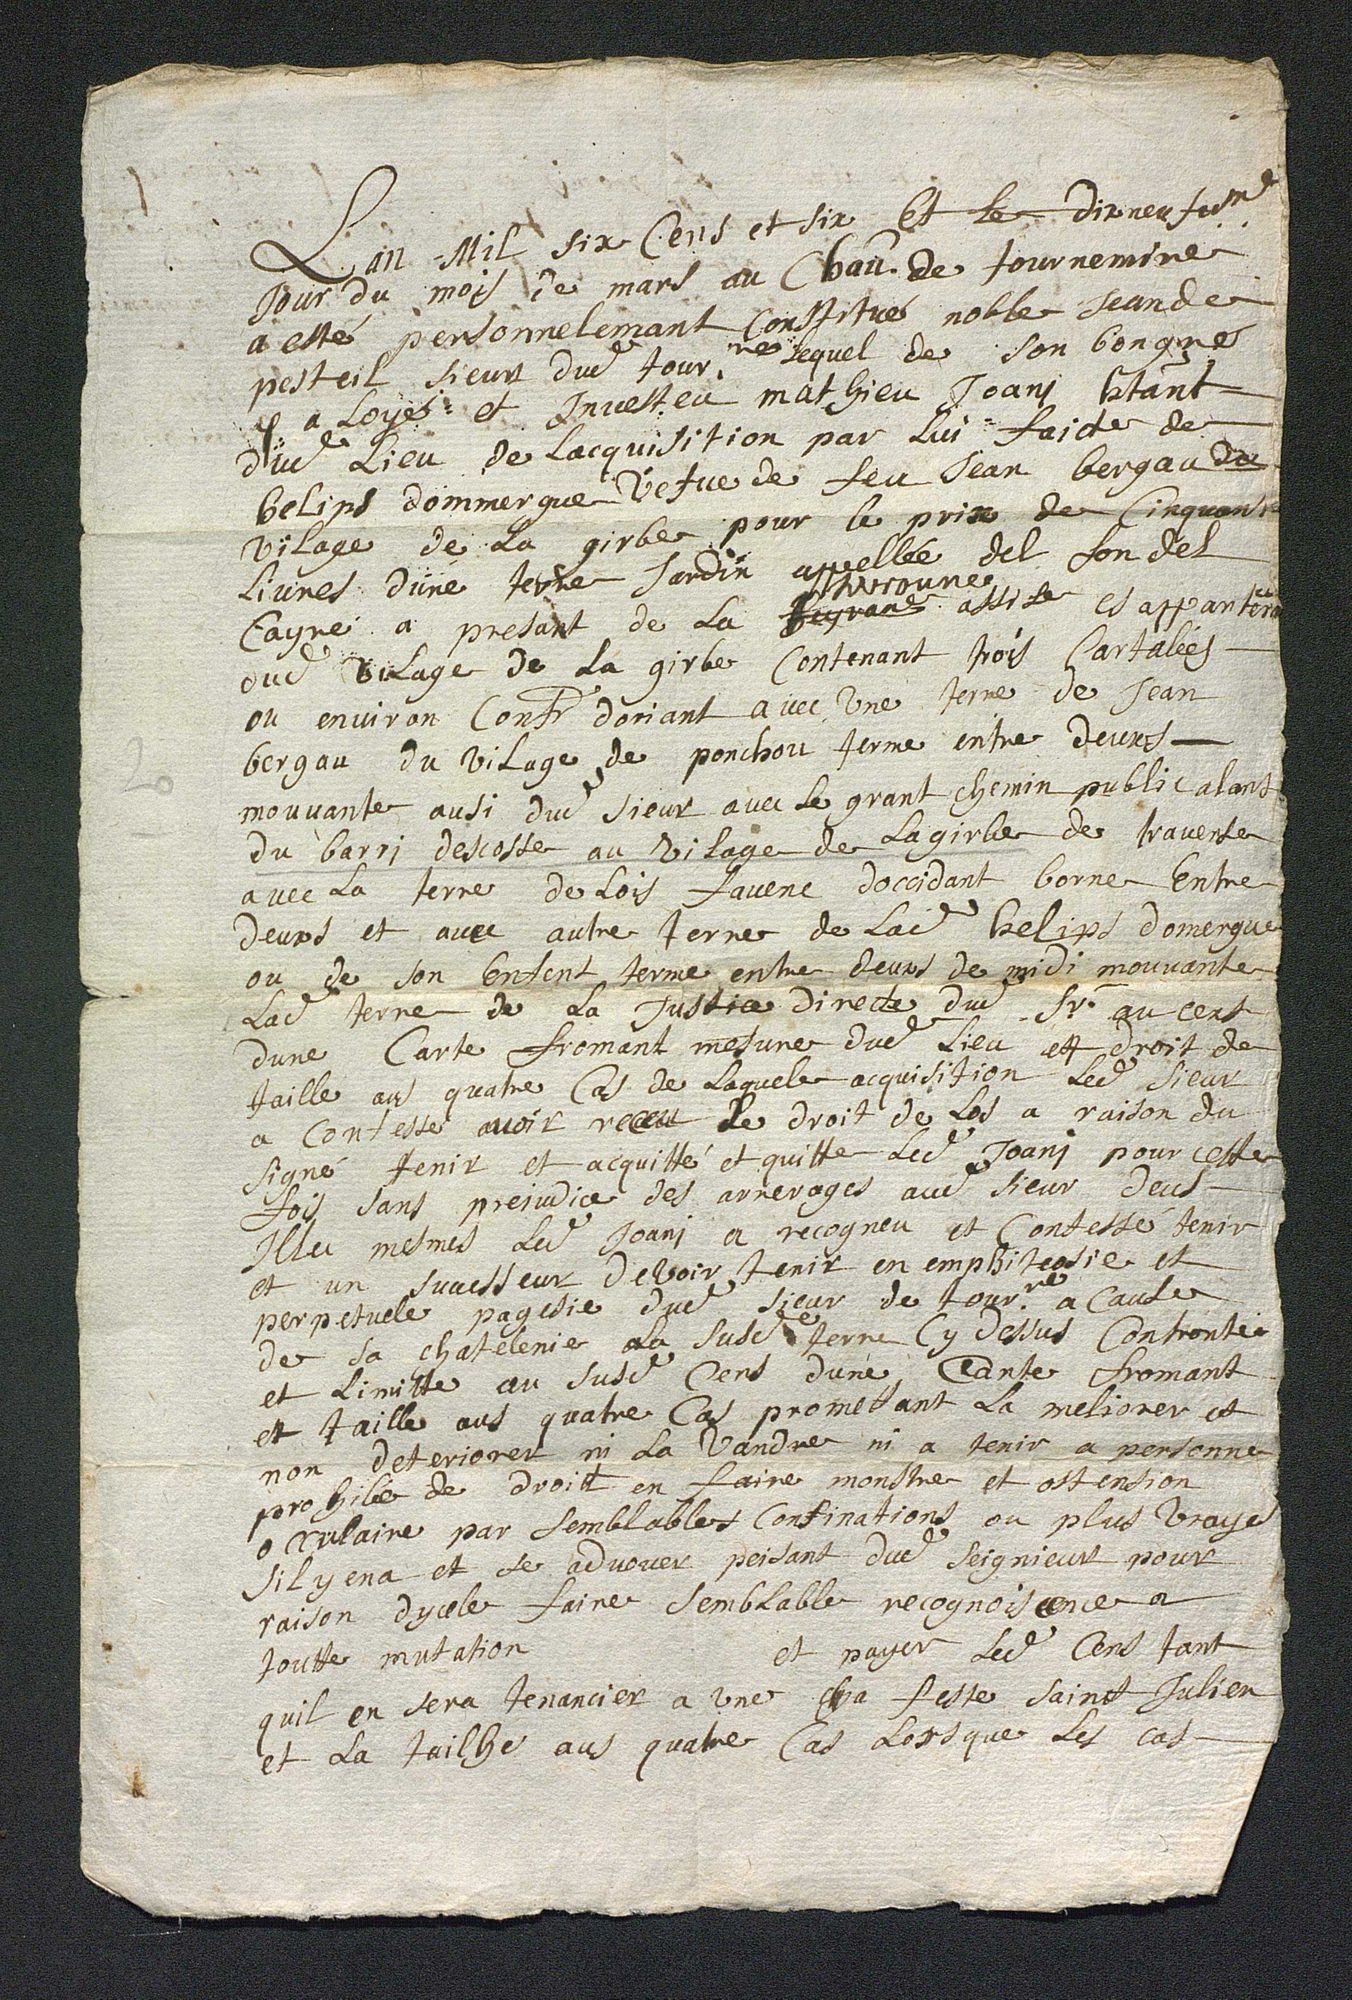 Lan Mil six Cens et six Et le dixneufvme
Jour du mois de mars au Chau. de tournemire
a esté personnelemant Constitué noble Jean de
pesteil sieur dud tour.re lequel de son bon gré
a Loyé et Investeu mathieu Joanj htant
dud Lieu de Lacquisition par Lui faicte de
helips dommergue Vefue de feu Jean bergau du
vilage de La girbe pour le prix de Cinquante
Liures dune terre Jardin appellée del fon del
Cayre a presant de La assise es appartenan
dud vilage de La girbe Contenant trois Cartalées
ou environ Confr doriant avec Une terre de Jean
bergau du vilage de ponchou terme entre deurs
mouvante ausi dud sieur avec Le grant chemin public alant
du barrj descosse au vilage de Lagirbe de traverse
avec La terre de Lois favenc doccidant borne Entre
deurs et avec autre terre de Lad helips domergue
ou de son Enfent terme entre deurs de midi mouvante
Lad terre de La Justice directe dud Sr. au cens
dune Carte fromant mesure dud Lieu et droit de
taille aus quatre Cas de Laquele acquisition Led sieur
a Confesse avoir receu Le droit de Los a raison du
signé tenir et acquitté et quitte Led Joanj pour ceste
fois sans prejudice des arrerages aud sieur deus
Illec mesmes Led Joanj a recogneu et Confessé tenir
et un sucesseur devoir tenir en emphiteosie et
perpetuele pagesie dud sieur de tour.re a Cause
de sa chatelenie La susd.e terre Cy dessus Confrontée
et Limitte au susd Cens dune Carte fromant
et taille aus quatre Cas promettant La meliorer et
non deteriorer ni La Vandre ni a tenir a personne
prohibée de droit en faire monstre et ostension
occulaire par semblables Confinations ou plus vrayes
sil y en a et se advouer peisant dud seignieur pour
raison dycele faire semblable recognoisence a
toutte mutation et payer Led Cens tant
quil en sera tenancier a Une cha feste saint Julien
et La tailhe aus quatre Cas Lors que Les cas